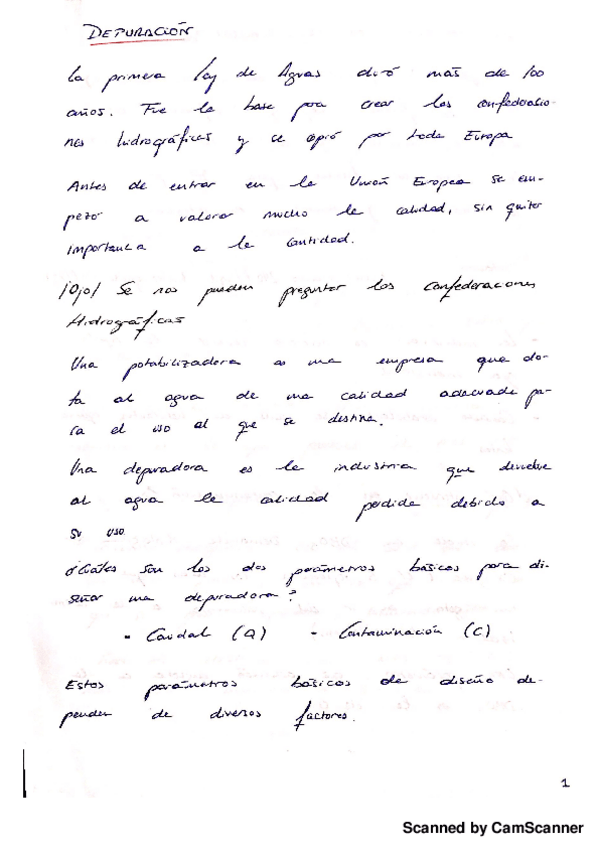 DEPURACIÓN
La primera ley de Aguas duró más de 100
años. Fue la base para crear las confederacio-
nes hidrográficas y se copió por toda Europa
Antes de entrar en la Unión Europea se em-
pezó a valorar mucho la calidad, sin quitar
importancia a la cantidad.
¡Ojo! Se nos pueden preguntar las Confederaciones
Hidrográficas
Una potabilizadora es una empresa que do-
ta al agua de una calidad adecuada pa-
ra el uso al que se destina.
Una depuradora es la industria que devuelve
al agua la calidad perdida debido a
su uso
¿Cuáles son los dos parámetros básicos para di-
señar una depuradora?
- Caudal (Q) - Contaminación (C)
Estos parámetros básicos de diseño de-
penden de diversos factores.
1
Scanned by CamScanner